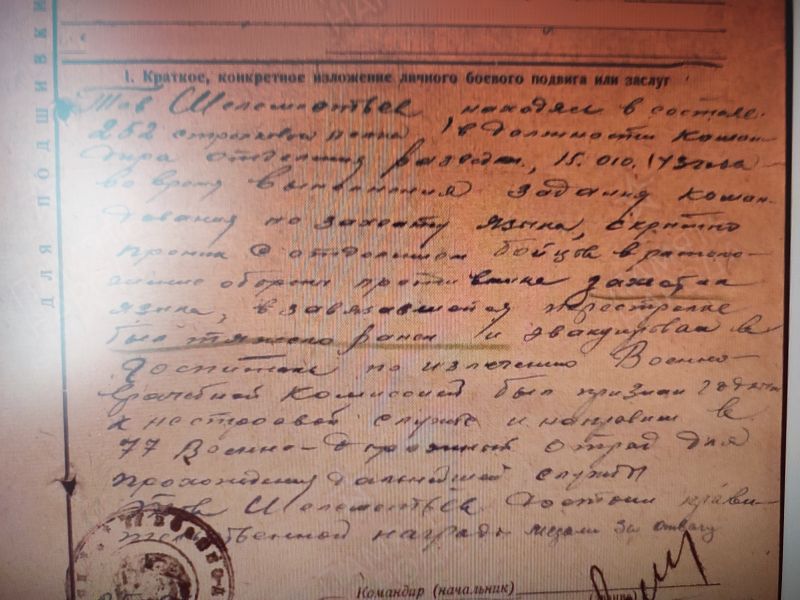 ДЛЯ ПОДШИВКИ
1. Краткое, конкретное изложение личного боевого подвига или заслуг
Тов Шелементьев находясь в составе
252 стрелкового полка, в должности коман
дира отделения разведки, 15.010.43 года
во время выполнения задания коман-
дования по захвату языка, скрытно
проник с отделением бойцов в
обороны противника захватил
языка, в завязавшейся перестрелке
был тяжело ранен и эвакуирован в
госпиталь по излечению Военно-
врачебной комиссией был признан годным
к нестроевой службе и направлен в
77 Военно-Дорожный отряд для
прохождения дальнейшей службы
Тов Шелементьев достоин прави-
тельственной награды медали за отвагу
Командир (начальник)